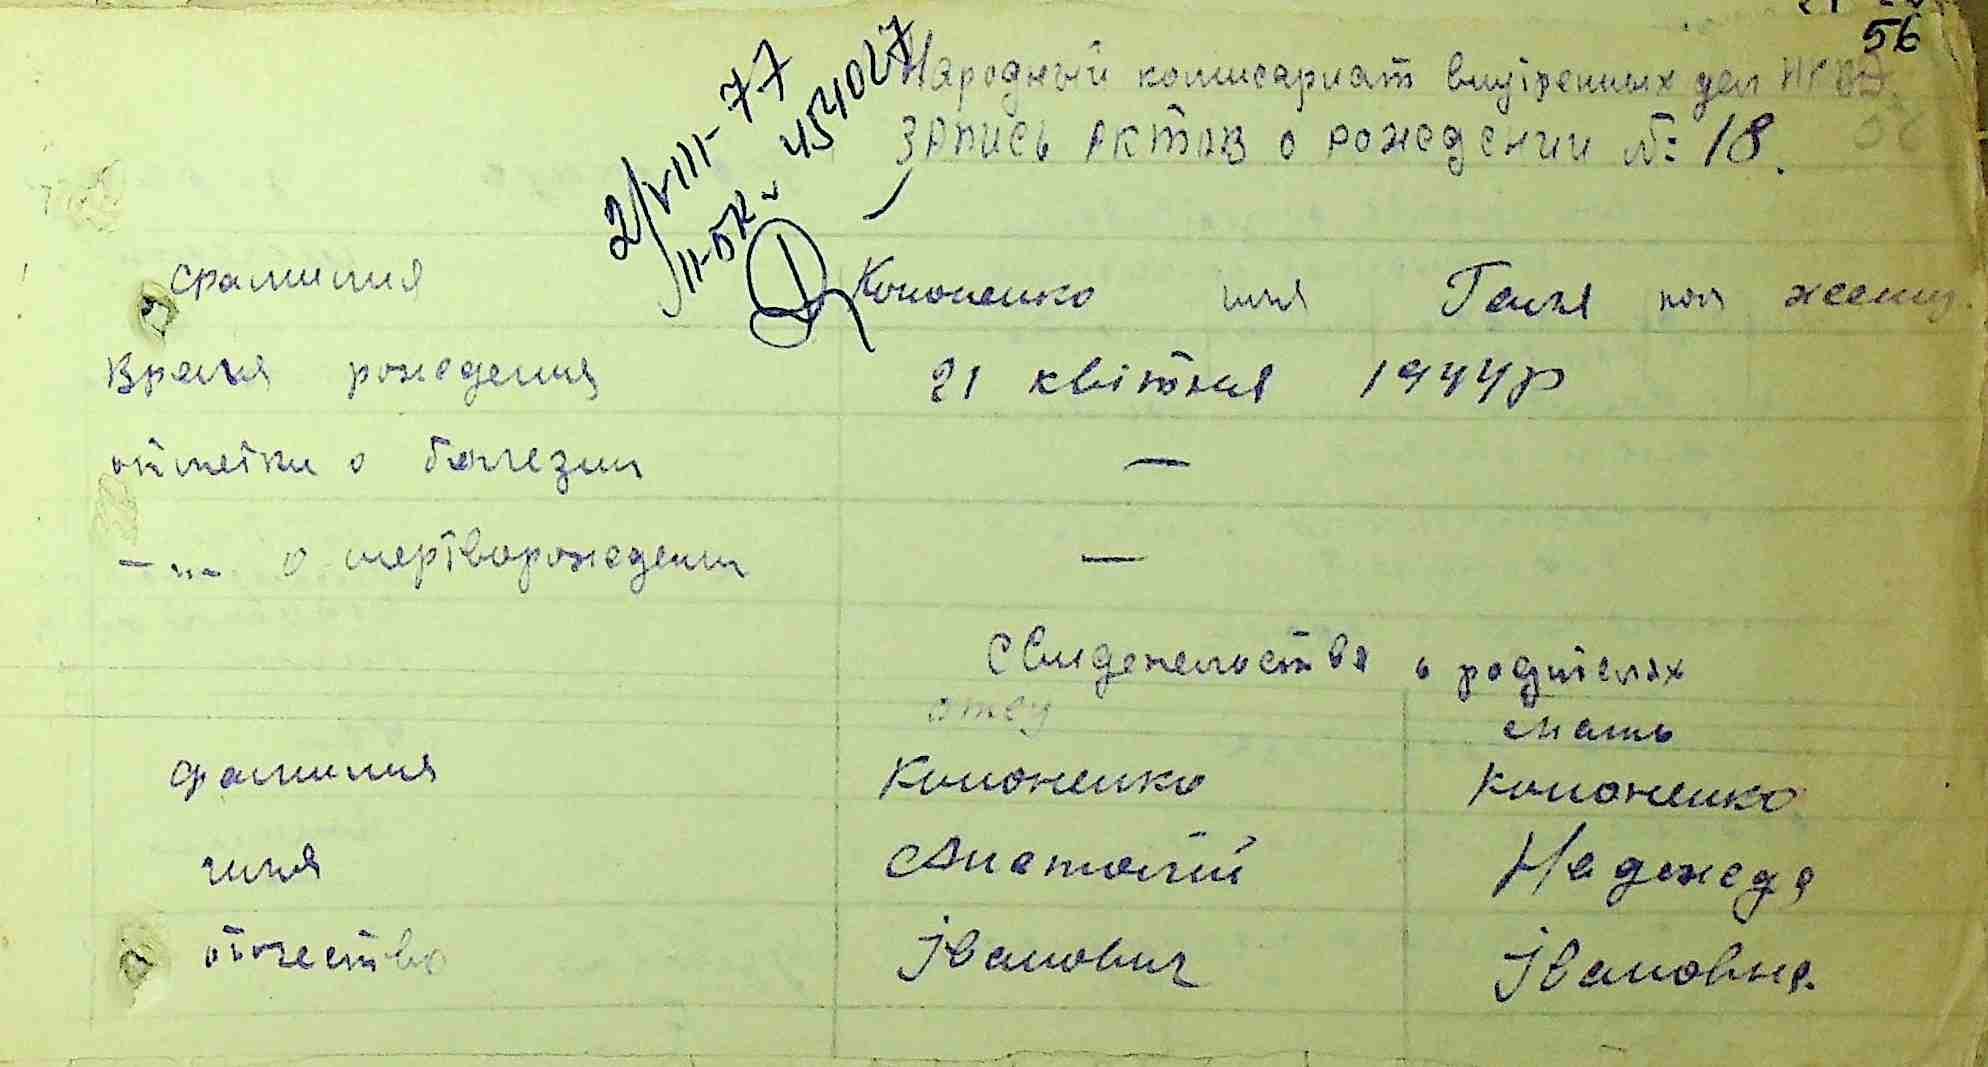 56
Народный комисариат внутренных дел НКВД.
Запись актов о рождении №: 18.
2/VIII-77
II-БК № 454027
фамилия Кононенко имя Галя пол женщ.
Время рождения 21 квітня 1944р
отметки о болезни —
—"— о мертворождении —
Свидетельства о родителях
отец мать
фамилия Кононенко Кононенко
имя Анатолій Надежда
отчество Іванович Івановна.